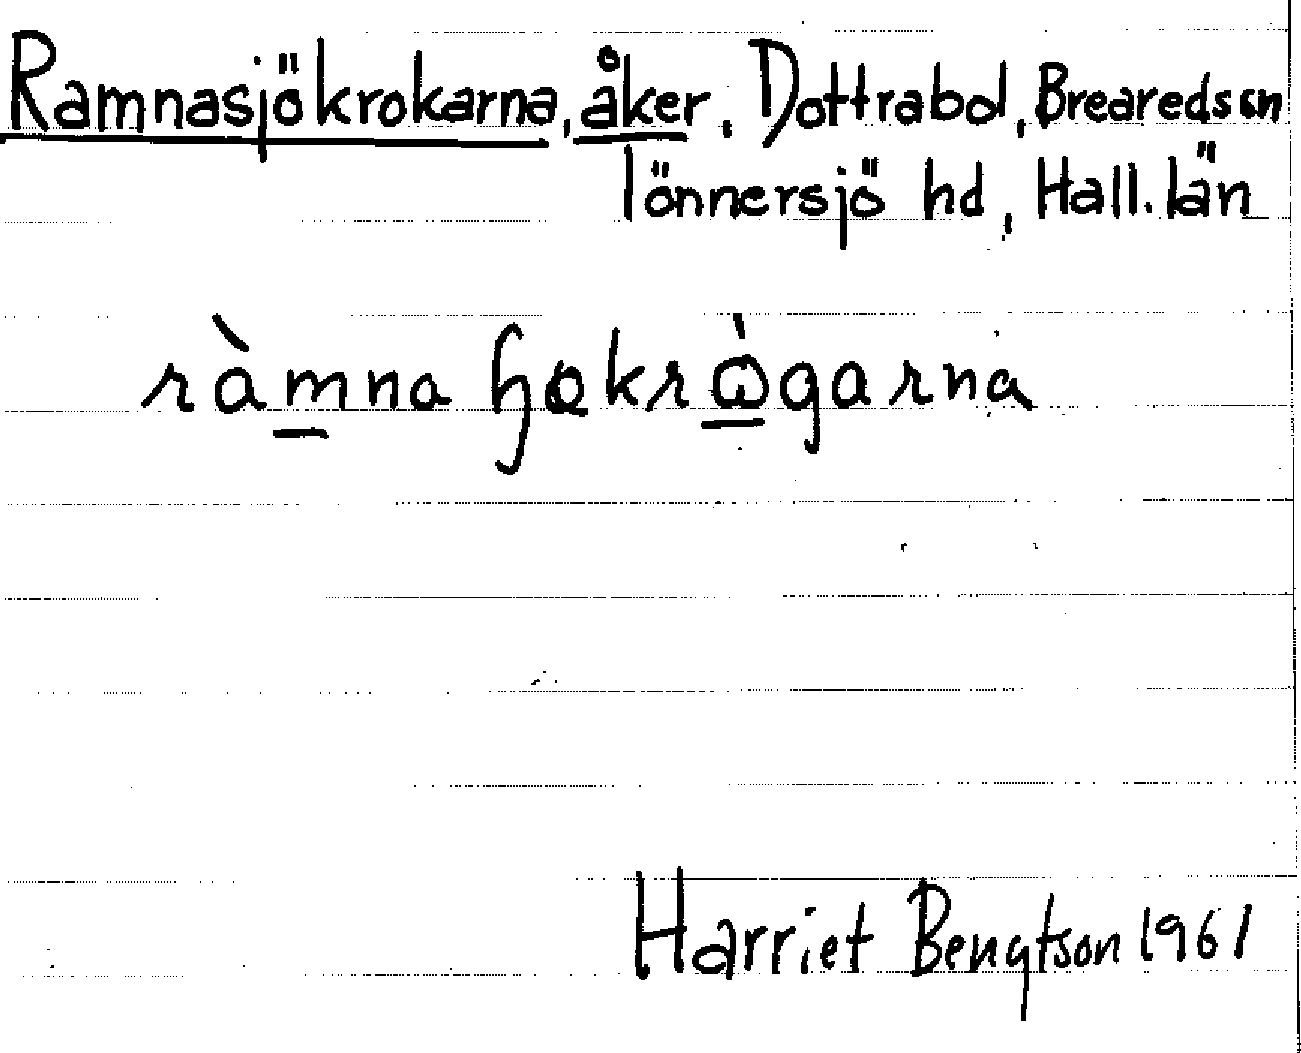 Ramnasjökrokarna, åker. Dottrabol, Breareds sn
Tönnersjö hd, Hall. län
ràmna ɧøkrɷ̀garna
Harriet Bengtson 1961